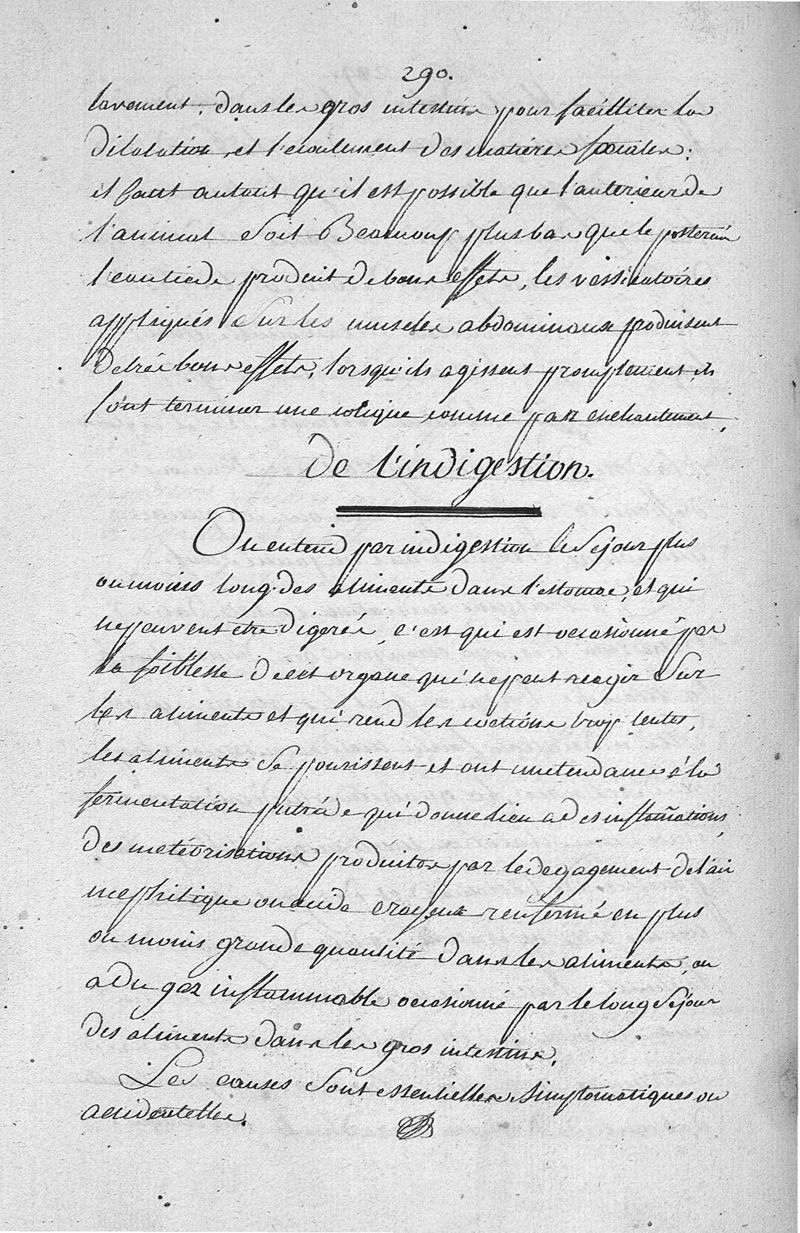 290.
lavement, dans les gros intestins pour facilliter la
dilatation et l'ecoulement des matières fœcales;
il faut autant qu'il est possible que l'anterieur de
l'animal soit Beaucoup plus bas que le posterieur
l'eau tiede produit de bons effets, les vessicatoires
appliqués sur les muscles abdominaux produisent
de très bons effets, lorsqu'ils agissent promptement, ils
font terminer une colique comme par enchantement,
de l'indigestion.
On entend par indigestion le séjour plus
ou moins long des aliments dans l'estomac, et qui
ne peuvent être digerés, c'est qui est occasionné par
la foiblesse de cet organe qui ne peut reagir sur
les aliments et qui rend les suctions trop lentes,
les aliments se pourissent et ont une tendance à la
fermentation putride qui donne lieu a des inflam̃ations,
des metéorisations produites par le degagement de l'air
mephitique ou acide crayeux renfermé en plus
ou moins grande quantité dans les aliments, ou
a du gaz inflammable occasionné par le long séjour
des aliments dans les gros intestins.
Les causes sont essentielles simptomatiques ou
accidentelles.